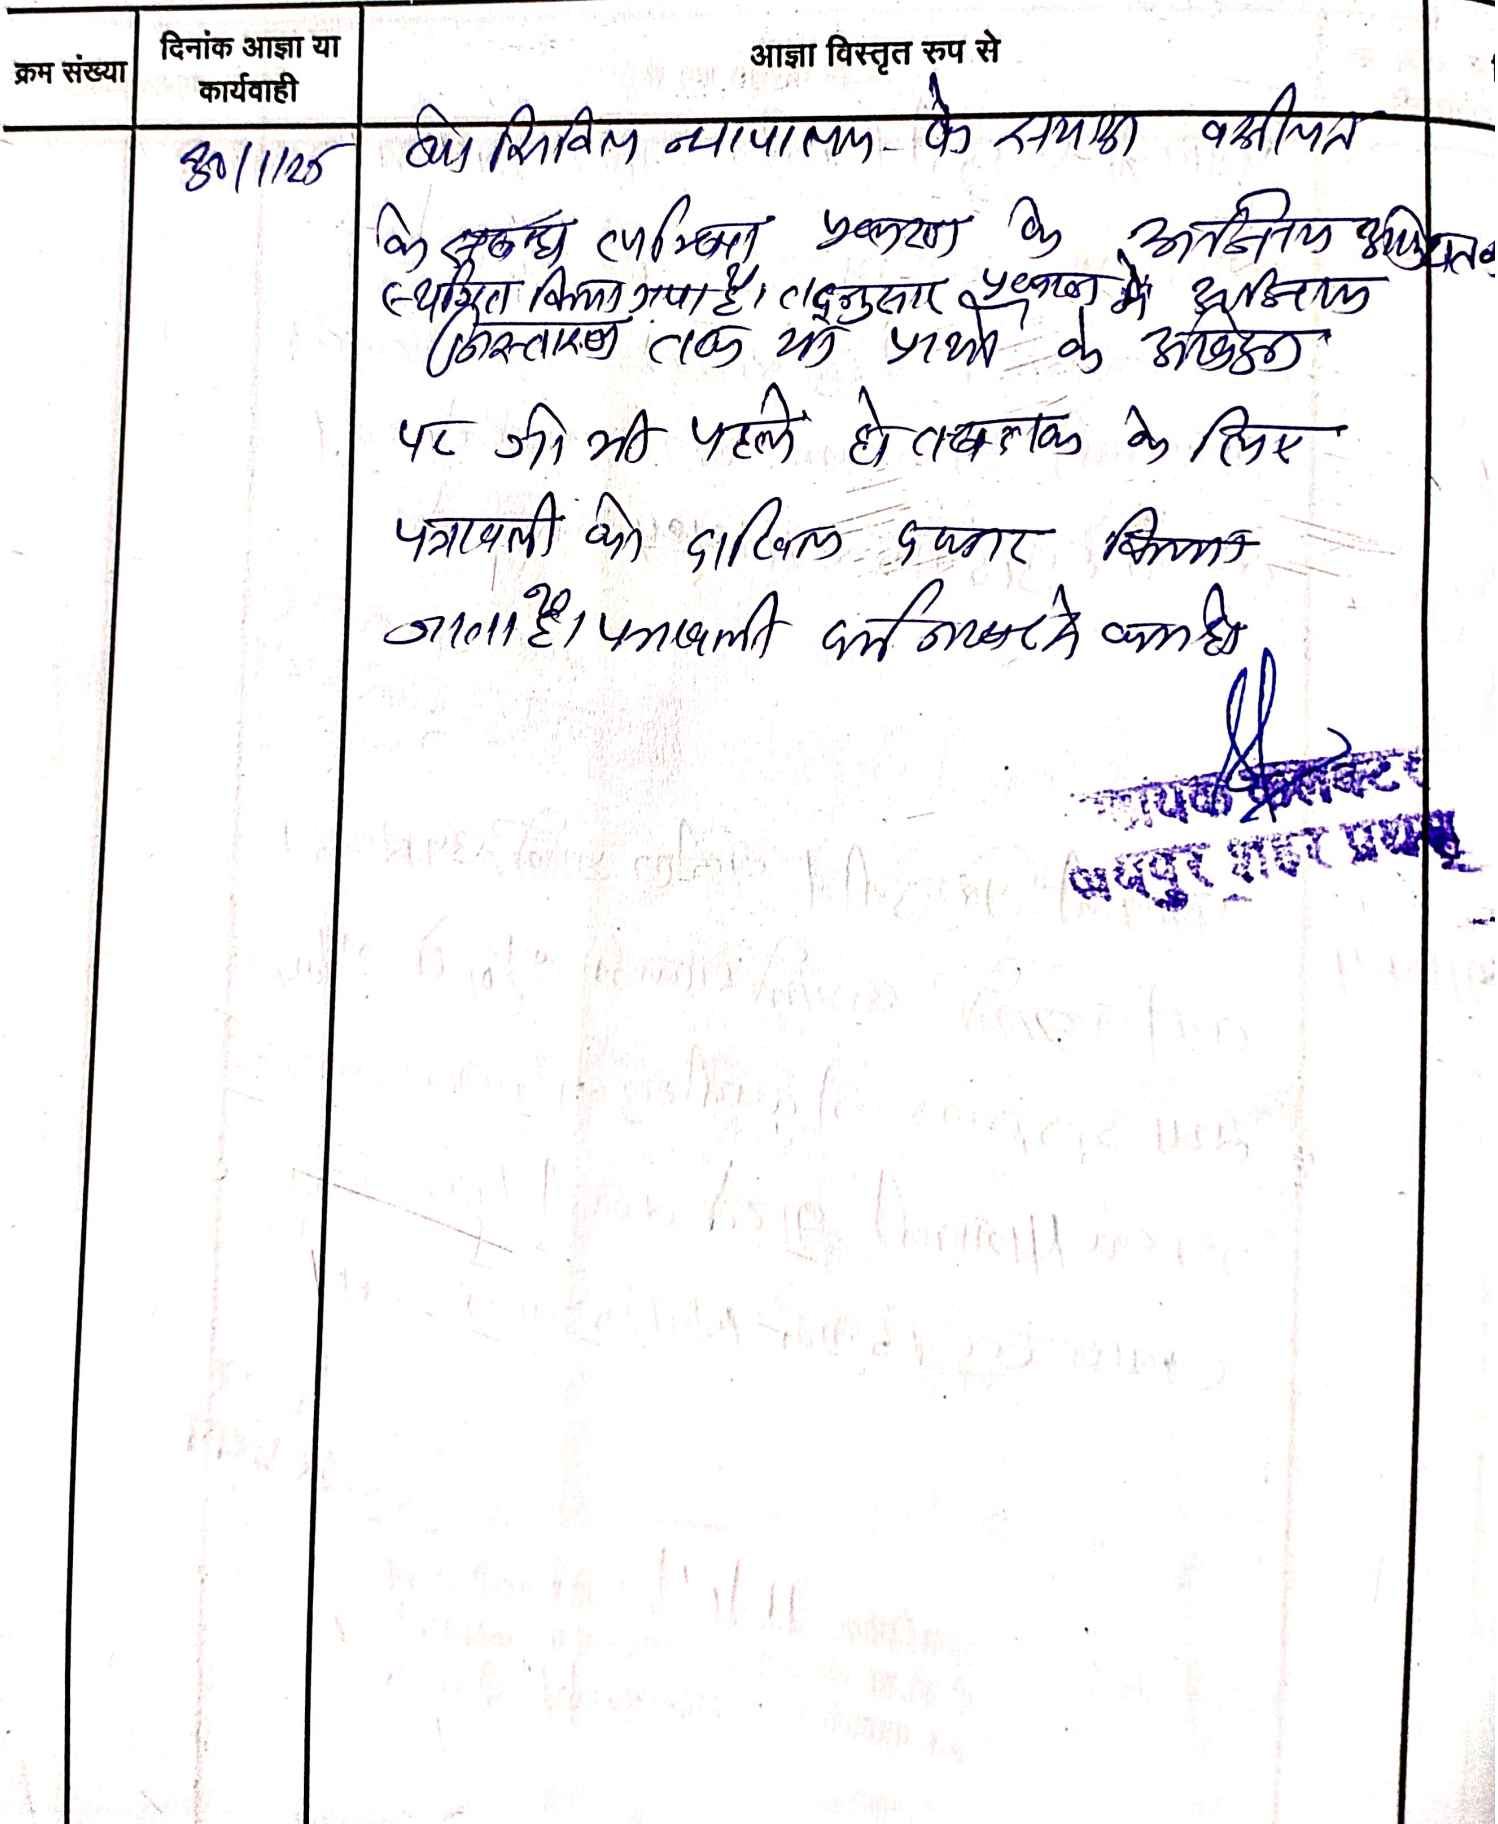 क्रम संख्या
दिनांक आज्ञा या
कार्यवाही
आज्ञा विस्तृत रुप से
30/1/25
सिविल न्यायालय के समक्ष वसीयत
के सम्बन्ध प्रकरण के अन्तिम
स्थगित किया गया है। तद्नुसार प्रकरण में अन्तिम
निस्तारण तक या प्रार्थी के
पर जो भी पहले हो तब तक के लिए
पत्रावली को दाखिल दफ्तर किया
जाता है। पत्रावली नम्बर से कम हो
सहायक कलक्टर
जयपुर शहर प्रथम